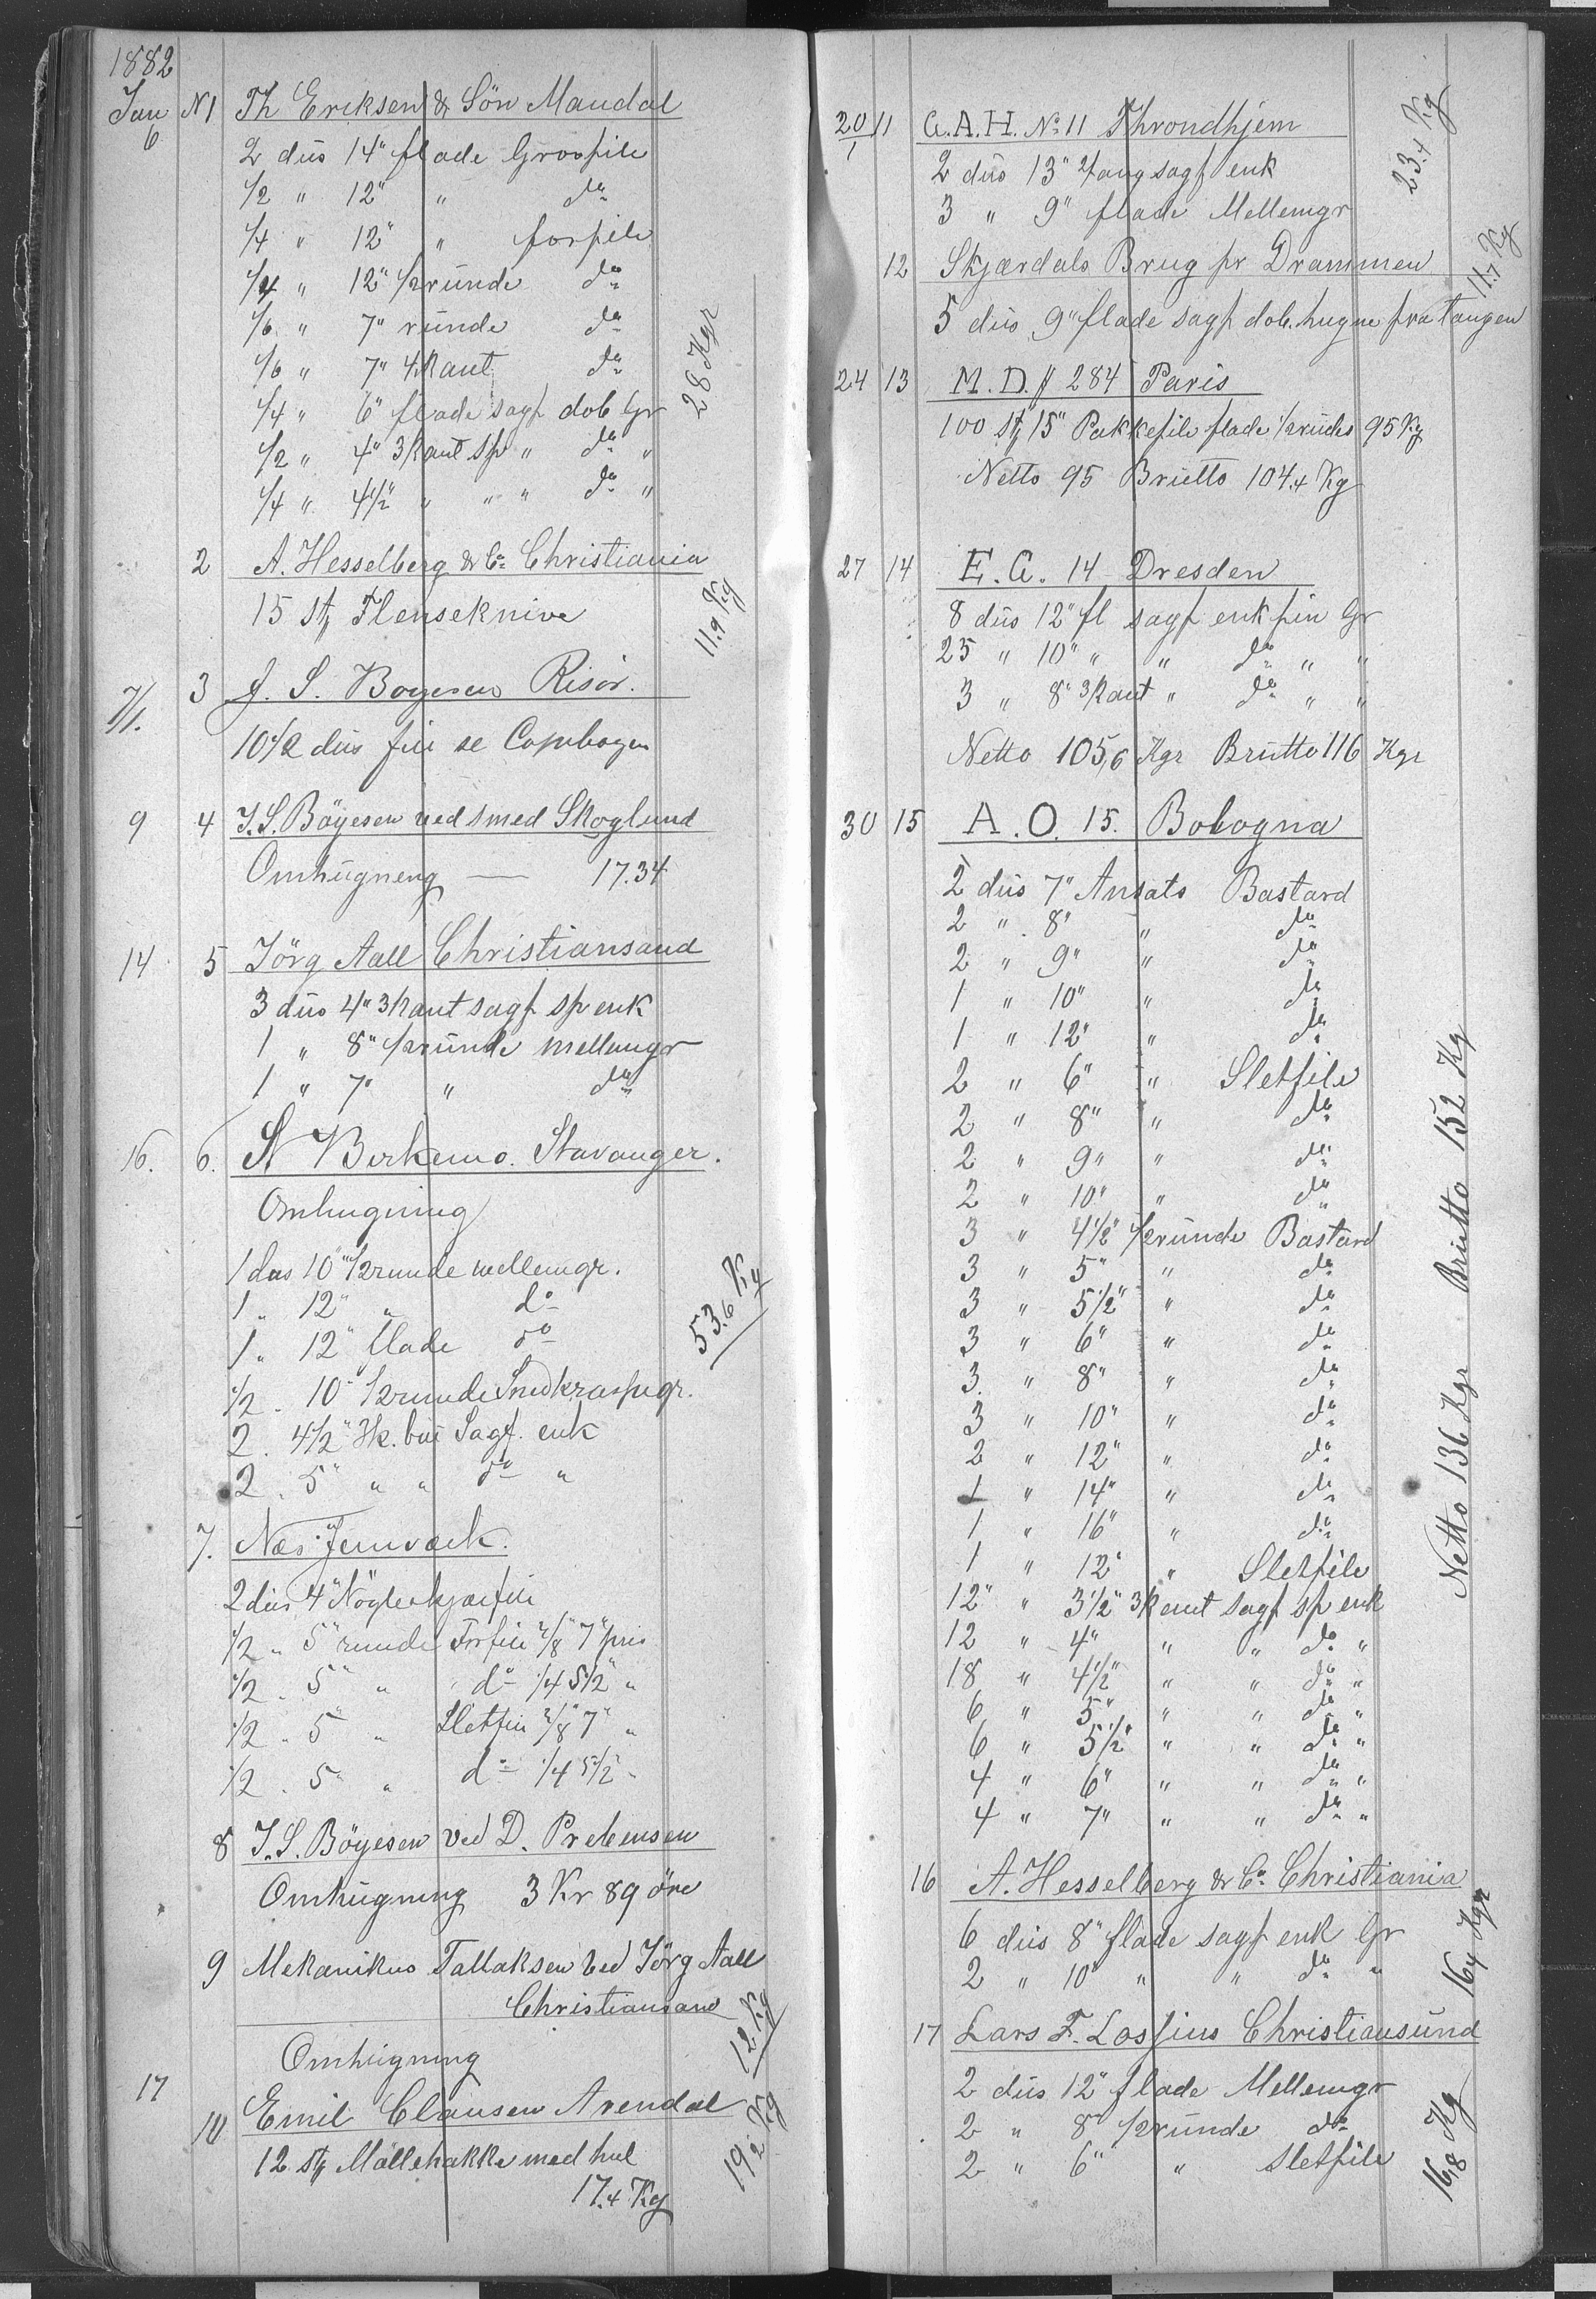 1882
Jan 6 N1 Th Eriksen & Sön Mandal
2 düs 14" flade Grovfile
1/2 " 12" " do
1/4 " 12" " forfile
1/4 " 12" 1/2 runde do
1/6 " 7" runde do
1/6 " 7" 4kant do
1/4 " 6" flade sagf dob Gr
1/2 " 4" 3kant sp " do "
1/4 " 4 1/2" " " " do "
28 Kgr
2 A. Hesselberg & Co Christiania
15 St Flenseknive
11.9 Kg
7/1. 3 J. S. Bogesen Risör.
10 1/2 düs file se Copibogen
9 4 J. S. Böyesen ved smed Skoglund
Omhügneng — 17.34
14 5 Jörg Aall Christiansand
3 düs 4" 3kant sagf sp enk
1 " 8" 1/2 runde mellemgr
1 " 7" " do
16. 6. N Birkemo. Stavanger.
Omhugning
1 dus 10" 1/2 runde mellemgr.
1 " 12" " do
1 " 12" flade do
1/2 " 10" 1/2 runde Snedkraspgr.
2 " 4 1/2" 3k. Sagf. enk
2 " 5" " " do "
53.6 Kg
7. Næs Jernværk.
2 düs 4" Nögleskjærfile
1/2 " 5" runde Forfile 2/8" 7" pris
1/2 " 5" " do 1/4 5 1/2" "
1/2 " 5" " Sletfile 2/8" 7" "
1/2 " 5" " do 1/4 5 1/2" "
8 J. S. Böyesen ved D. Prebensen
Omhügning 3 Kr 89 öre
9 Mekanikus Tallaksen ved Jörg Aall
Christiansand
Omhügning
12 Kg
17 10 Emil Clausen Arendal
12 St Möllehakke med hul
17.4 Kg
19.2 Kg
20/1 11 G. A. H. No 11 Throndhjem
2 düs 13" Tang sagf enk
3 " 9" flade Mellemgr
23.4 Kg
12 Skjærdals Brug pr Drammen
5 düs 9" flade sagf dob. hugne fra tangen
11.7 Kg
24 13 M. D. # 284 Paris
100 St 15" Pakkefile flade 1/2 rude 95 Kg
Netto 95 Brütto 104.4 Kg
27 14 E. G. 14 Dresden
8 düs 12" fl sagf enk fin Gr
25 " 10" " " do " "
3 " 8" 3kant " do " "
Netto 105,6 Kgr Brütto 116 Kgr
30 15 A. O. 15. Bologna
2 düs 7" Ansats Bastard
2 " 8" " do
2 " 9" " do
1 " 10" " do
1 " 12" " do
2 " 6" " Sletfile
2 " 8" " do
2 " 9" " do
2 " 10" " do
3 " 4 1/2" 1/2 runde Bastard
3 " 5" " do
3 " 5 1/2" " do
3 " 6" " do
3 " 8" " do
3 " 10" " do
2 " 12" " do
1 " 14" " do
1 " 16" " do
1 " 12" " Sletfile
12 " 3 1/2" 3kant sagf sp enk
12 " 4" " " do "
18 " 4 1/2" " " do "
6 " 5" " " do "
6 " 5 1/2" " " do "
4 " 6" " " do "
4 " 7" " " do "
Netto 136 Kgr Brütto 152 Kg
16 A. Hesselberg & Co Christiania
6 düs 8" flade sagf enk Gr
2 " 10" " " do "
16.4 Kgr
17 Lars F. Lossius Christiansünd
2 düs 12" flade Mellemgr
2 " 8" 1/2 runde do
2 " 6" " Sletfile
16.8 Kg